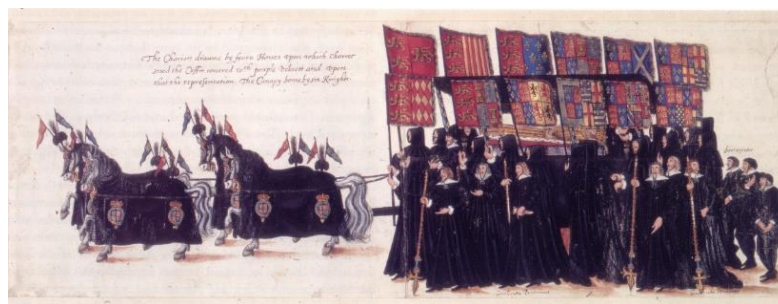 The Chariott drawne by foure Horses vpon which Charret
stood the Coffin couered wth purple Veluett and vpon
that the representation. The Canapy borne by six Knights